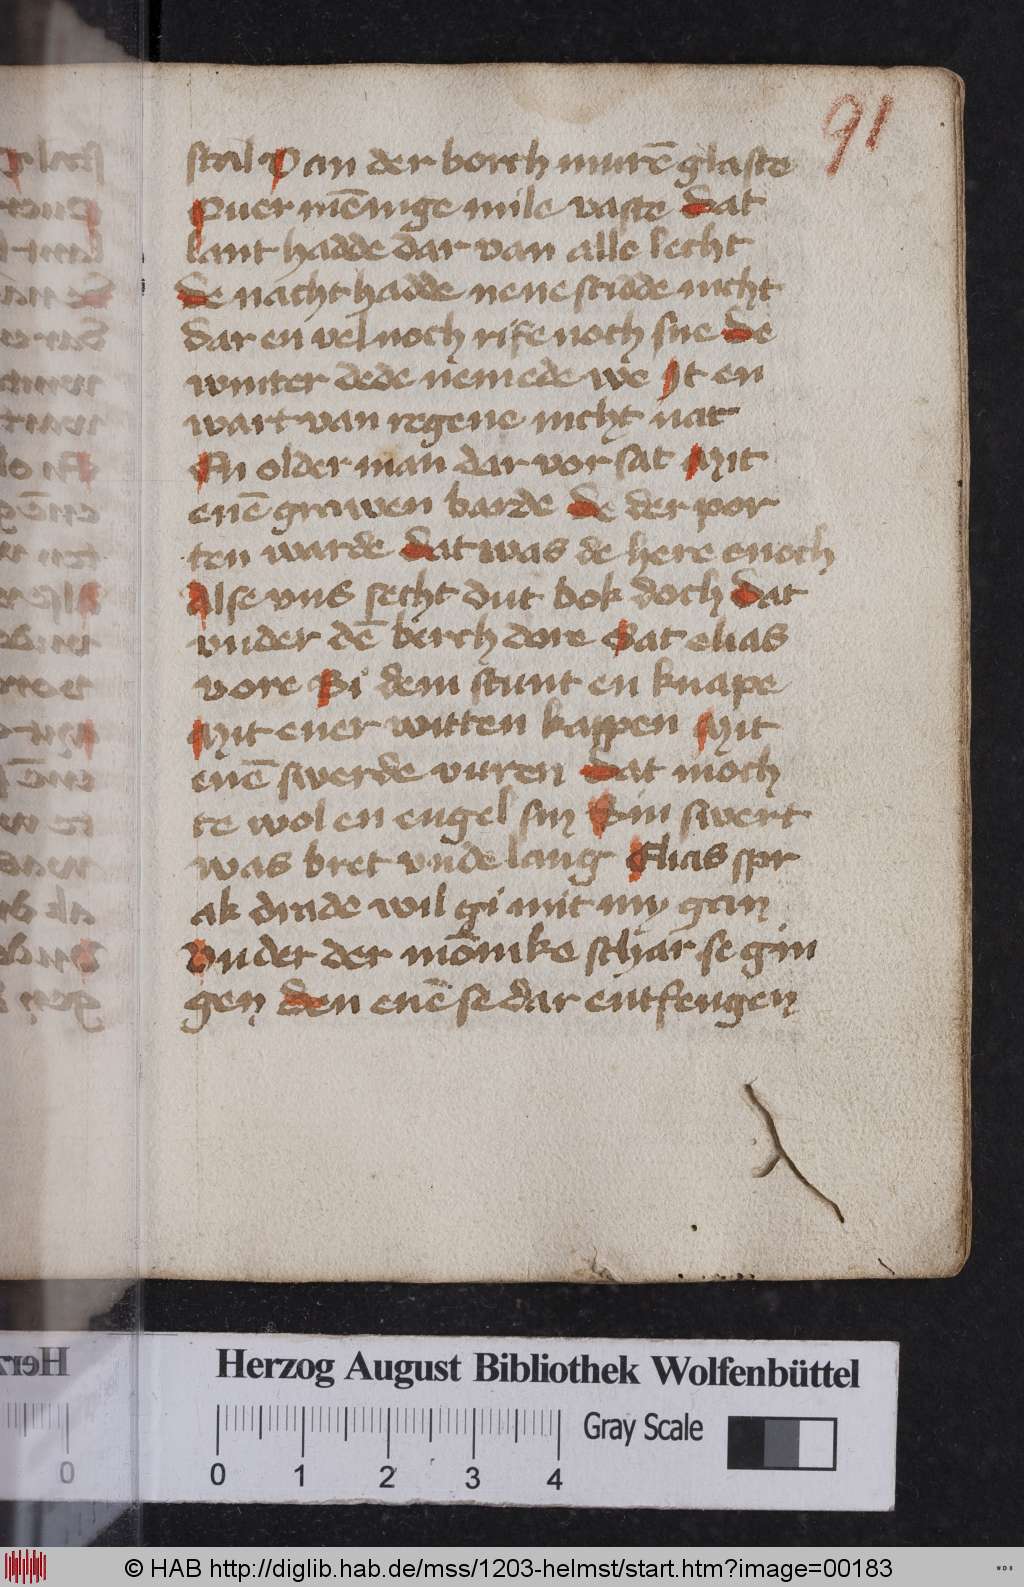 91
stal Van der borch murē glaste
Ouer mēnige mile vaste dat
lant hadde dar van alle lecht
de nacht hadde nene stidde nicht
dar en vel noch rife noch sne de
winter dede nemede we It en
wart van regene nicht nat
En older man dar vor sat Mit
enē grawen barde De der por
ten warde Dat was de here enoch
Alse vns secht dut bok doch Dat
vnder dē berch dore Sat elias
vore Bi dem stunt en knape
Mit ener witten kappen Mit
enē swerde vuren Dat moch
te wol en engel sin Sin swert
was bret vnde lang Elias spr
ak drade wil gi mit my gan
Vnder der mōnike schar se gin
gen den enē se dar entfengen
Herzog August Bibliothek Wolfenbüttel
Gray Scale
0 1 2 3 4
0
© HAB http://diglib.hab.de/mss/1203-helmst/start.htm?image=00183